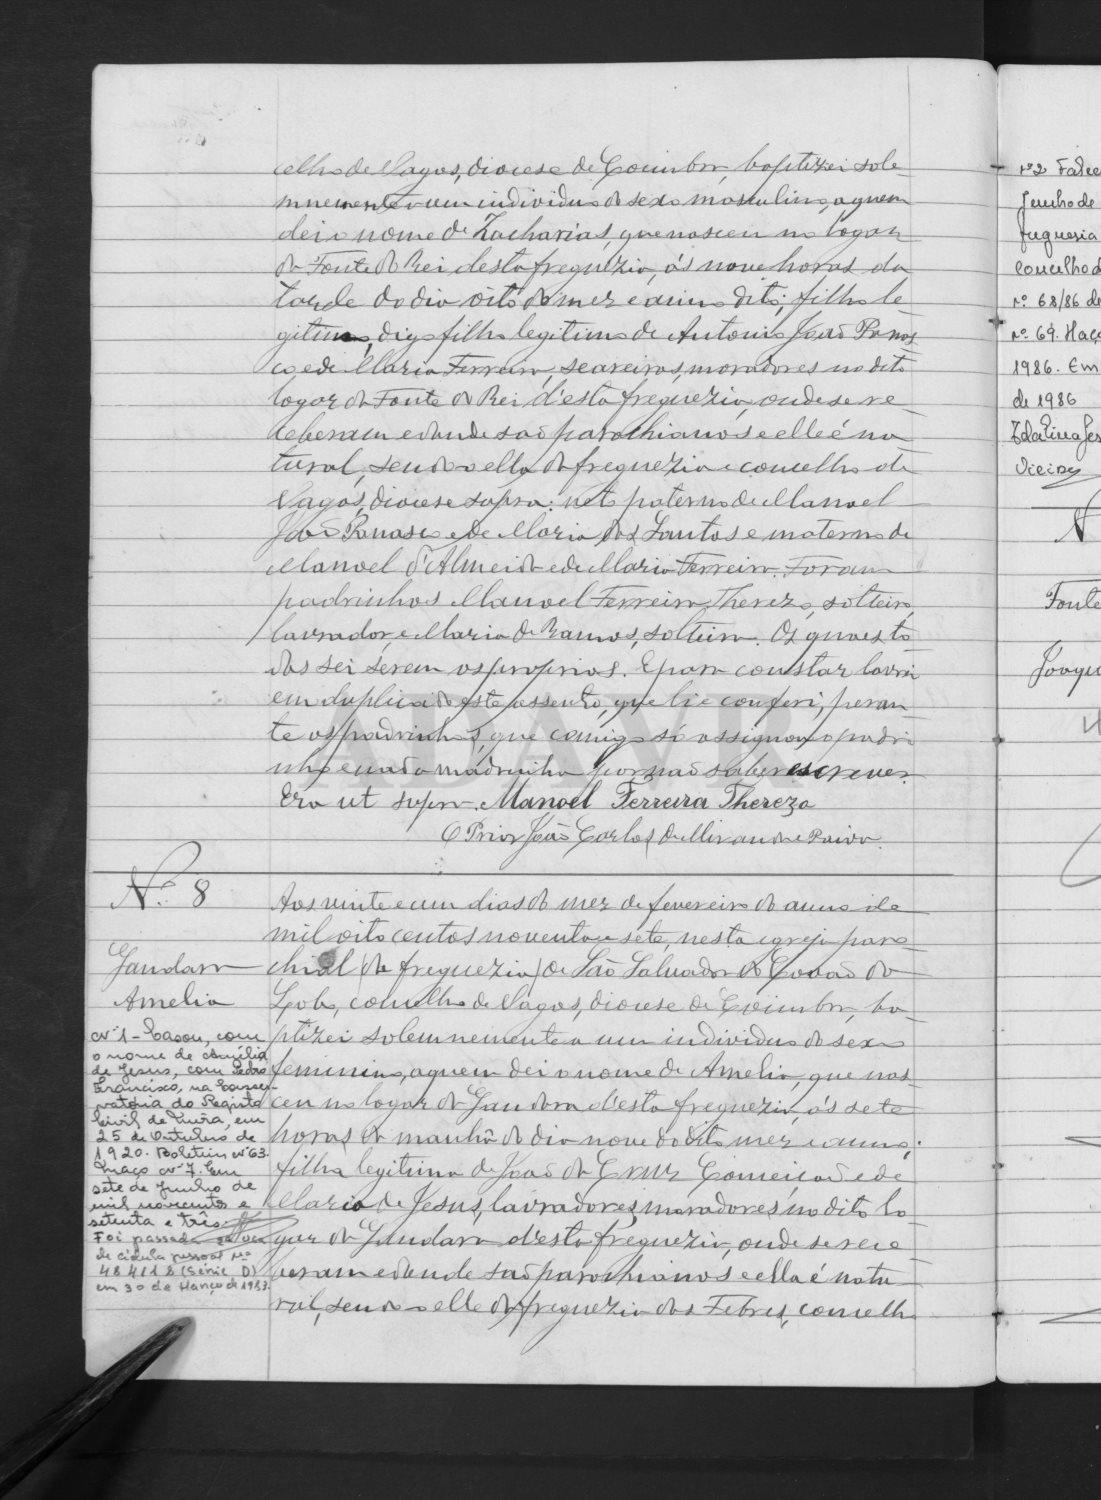 celho de Vagos, diocese de Coimbra, baptizei sole-
mnemente a um individuo do sexo masculino, a quem
dei o nome de Zacharias, que nasceu no logar
da Fonte do Rei desta freguezia, ás nove horas da
tarde do dia oito do mez e anno dito; filho le-
gitimo, digo filho legitimo de Antonio João Panas
co, e de Maria Ferreira, seareiros, moradores no dito
logar da Fonte do Rei d'esta freguezia, onde se re-
ceberam e d'onde são parochianos e elle é na-
tural, sendo ella da freguezia e concelho de
Vagos, diocese supra: neto paterno de Manoel
João Panasco e de Maria dos Santos e materno de
Manoel d'Almeida e de Maria Ferreira. Foram
padrinhos Manoel Ferreira Thereza, solteiro,
lavrador, e Maria de Ramos, solteira. Os quaes to-
dos sei serem os proprios. E para constar lavrei
em duplicado este assento, que li e conferi, peran-
te os padrinhos, que comigo só assigna o padri
nho e não a madrinha por não saber escrever.
Era ut supra. Manoel Ferreira Thereza
O Prior João Carlos de Miranda e Paiva.
N.º 8
Aos vinte e um dias do mez de fevereiro do anno de
mil oitocentos noventa e sete, nesta egreja paro-
Gandara
chial (da freguezia) de São Salvador do Covão do
Amelia
Lobo, concelho de Vagos, diocese de Coimbra, ba-
ptizei solemnemente a um individuo do sexo
feminino, a quem dei o nome de Amelia, que nas-
ceu no logar da Gandara d'esta freguezia, ás sete
horas da manhã do dia nove do dito mez e anno;
filha legitima de João da Cruz Conceição e de
Maria de Jesus, lavradores, moradores no dito lo-
gar da Gandara d'esta freguezia, onde se rece-
beram e d'onde são parochianos e ella é natu-
ral, sendo elle da freguezia das Febres, concelho
Nº 1 - Casou, com
o nome de Amélia
de Jesus, com Pedro
Francisco, na Conser-
vatória do Registo
Civil de Mira, em
25 de Outubro de
1920. Boletim nº 63.
Maço nº 7. Em
sete de Junho de
mil novecentos e
setenta e três.
Foi passada
de cédula pessoal nº
484118 (Série D)
em 30 de Março de 1983.
nº 2 Falec
Junho de
freguesia
concelho d
nº 68/86 de
nº 69. Maço
1986. Em
de 1986
Vieira
N
Fonte
Joaqu